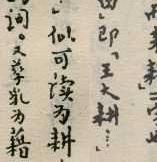 田」即「王大耕…」
」似可读为耕
的词。又孳乳为藉